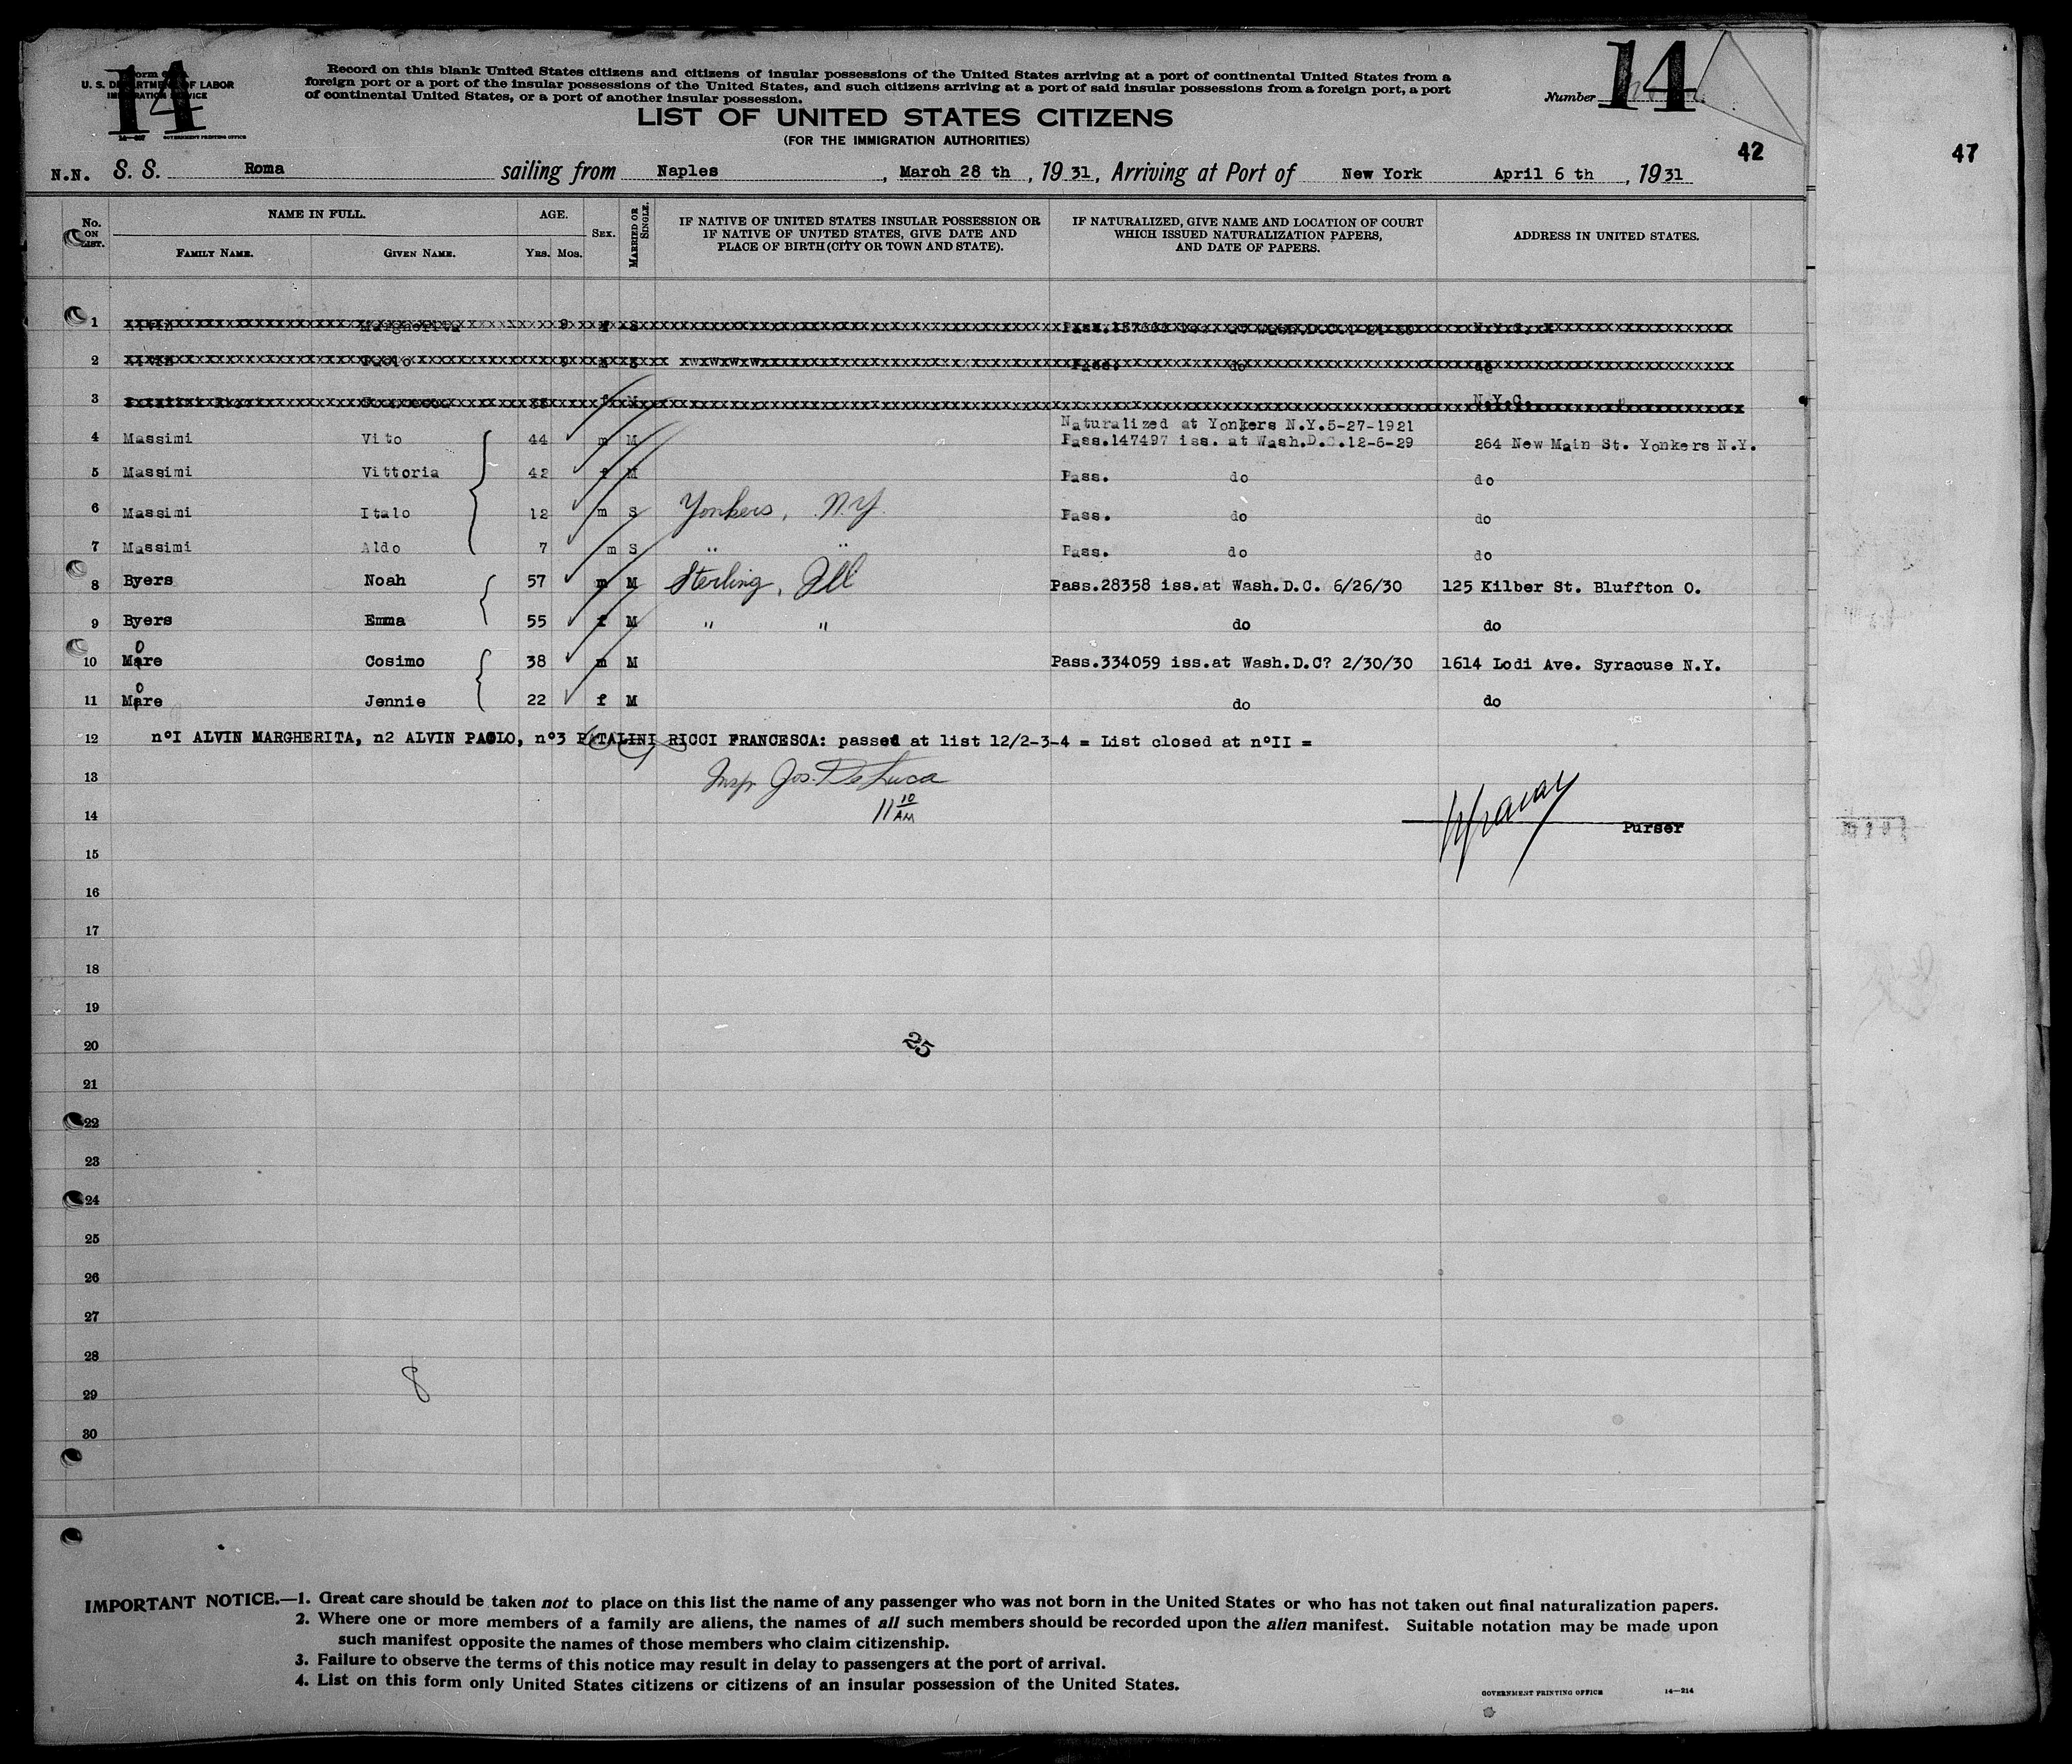 14
U. S. DEPARTMENT OF LABOR
IMMIGRATION SERVICE
GOVERNMENT PRINTING OFFICE
Record on this blank United States citizens and citizens of insular possessions of the United States arriving at a port of continental United States from a
foreign port or a port of the insular possessions of the United States, and such citizens arriving at a port of said insular possessions from a foreign port, a port
of continental United States, or a port of another insular possession.
Number 14
LIST OF UNITED STATES CITIZENS
(FOR THE IMMIGRATION AUTHORITIES)
42
47
N.N. S. S. Roma sailing from Naples , March 28 th , 19 31, Arriving at Port of New York April 6 th , 19 31
No. ON LIST. NAME IN FULL. FAMILY NAME. GIVEN NAME. AGE. YRS. MOS. SEX. MARRIED OR SINGLE. IF NATIVE OF UNITED STATES INSULAR POSSESSION OR IF NATIVE OF UNITED STATES, GIVE DATE AND PLACE OF BIRTH (CITY OR TOWN AND STATE). IF NATURALIZED, GIVE NAME AND LOCATION OF COURT WHICH ISSUED NATURALIZATION PAPERS, AND DATE OF PAPERS. ADDRESS IN UNITED STATES.
1
2
3 N.Y.C.
Naturalized at Yonkers N.Y.5-27-1921
4 Massimi Vito 44 m M Pass.147497 iss. at Wash.D.C.12-6-29 264 New Main St. Yonkers N.Y.
5 Massimi Vittoria 42 f M Pass. do do
6 Massimi Italo 12 m S Yonkers, N.Y. Pass. do do
7 Massimi Aldo 7 m S " " Pass. do do
8 Byers Noah 57 m M Sterling, Ill Pass.28358 iss.at Wash.D.C. 6/26/30 125 Kilber St. Bluffton O.
9 Byers Emma 55 f M " " do do
10 More Cosimo 38 m M Pass.334059 iss.at Wash.D.C? 2/30/30 1614 Lodi Ave. Syracuse N.Y.
11 More Jennie 22 f M do do
12 n°I ALVIN MARGHERITA, n2 ALVIN PAOLO, n°3 PATALINI RICCI FRANCESCA: passed at list 12/2-3-4 = List closed at n°II =
13 Insp. Jos. DeLuca
14 11 10 AM Purser
15
16
17
18
19
20 25
21
22
23
24
25
26
27
28
29 8
30
IMPORTANT NOTICE.—1. Great care should be taken not to place on this list the name of any passenger who was not born in the United States or who has not taken out final naturalization papers.
2. Where one or more members of a family are aliens, the names of all such members should be recorded upon the alien manifest. Suitable notation may be made upon
such manifest opposite the names of those members who claim citizenship.
3. Failure to observe the terms of this notice may result in delay to passengers at the port of arrival.
4. List on this form only United States citizens or citizens of an insular possession of the United States.
GOVERNMENT PRINTING OFFICE 14—214